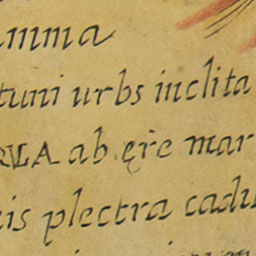 amma
tuni urbs inclita
RVLA ab ęre mar
is plectra cadu